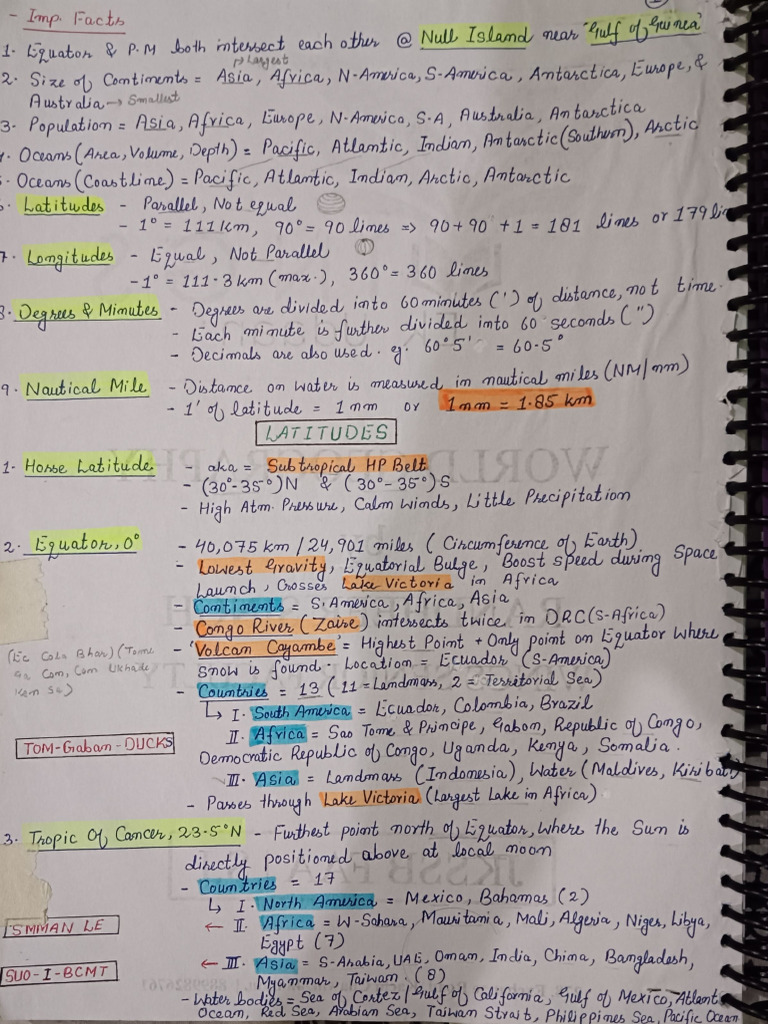 - Imp. Facts
1. Equator & P.M both intersect each other @ Null Island near "Gulf of Guinea"
→ Largest
2. Size of Continents = Asia, Africa, N-America, S-America, Antarctica, Europe, &
Australia → Smallest
3. Population = Asia, Africa, Europe, N-America, S-A, Australia, Antarctica
4. Oceans (Area, Volume, Depth) = Pacific, Atlantic, Indian, Antarctic (Southern), Arctic
- Oceans (Coastline) = Pacific, Atlantic, Indian, Arctic, Antarctic
6. Latitudes - Parallel, Not equal
- 1° = 111 km, 90° = 90 lines => 90+90+1 = 181 lines or 179 lin
7. Longitudes - Equal, Not Parallel
- 1° = 111.3 km (max.), 360° = 360 lines
8. Degrees & Minutes - Degrees are divided into 60 minutes (') of distance, not time.
- Each minute is further divided into 60 seconds (")
- Decimals are also used. eg. 60°5' = 60.5°
9. Nautical Mile - Distance on water is measured in nautical miles (NM/nm)
- 1' of latitude = 1 nm or 1 nm = 1.85 km
LATITUDES
1. Horse Latitude - aka = Subtropical HP Belt
- (30°-35°)N & (30°-35°)S
- High Atm. Pressure, Calm Winds, Little Precipitation
2. Equator, 0° - 40,075 km / 24,901 miles (Circumference of Earth)
- Lowest Gravity, Equatorial Bulge, Boost speed during Space
Launch, Crosses Lake Victoria in Africa
- Continents = S.America, Africa, Asia
- Congo River (Zaire) intersects twice in DRC (S-Africa)
- 'Volcan Cayambe' = Highest Point + Only point on Equator where
snow is found. Location = Ecuador (S-America)
(Ec Colo Bhar) (Tome
Ga Com, Com Ukhade
Ken Se)
- Countries = 13 (11 = Landmass, 2 = Territorial Sea)
↳ I. South America = Ecuador, Colombia, Brazil
II. Africa = Sao Tome & Principe, Gabon, Republic of Congo,
TOM-Gaban-DUCKS
Democratic Republic of Congo, Uganda, Kenya, Somalia.
III. Asia = Landmass (Indonesia), Water (Maldives, Kiribati)
- Passes through Lake Victoria (Largest Lake in Africa)
3. Tropic Of Cancer, 23.5°N - Furthest point north of Equator, where the Sun is
directly positioned above at local noon
- Countries = 17
↳ I. North America = Mexico, Bahamas (2)
SMMAN LE
← II. Africa = W-Sahara, Mauritania, Mali, Algeria, Niger, Libya,
Egypt (7)
SUO-I-BCMT
← III. Asia = S-Arabia, UAE, Oman, India, China, Bangladesh,
Myanmar, Taiwan. (8)
- Water bodies = Sea of Cortez / Gulf of California, Gulf of Mexico, Atlant
Ocean, Red Sea, Arabian Sea, Taiwan Strait, Philippines Sea, Pacific Ocean